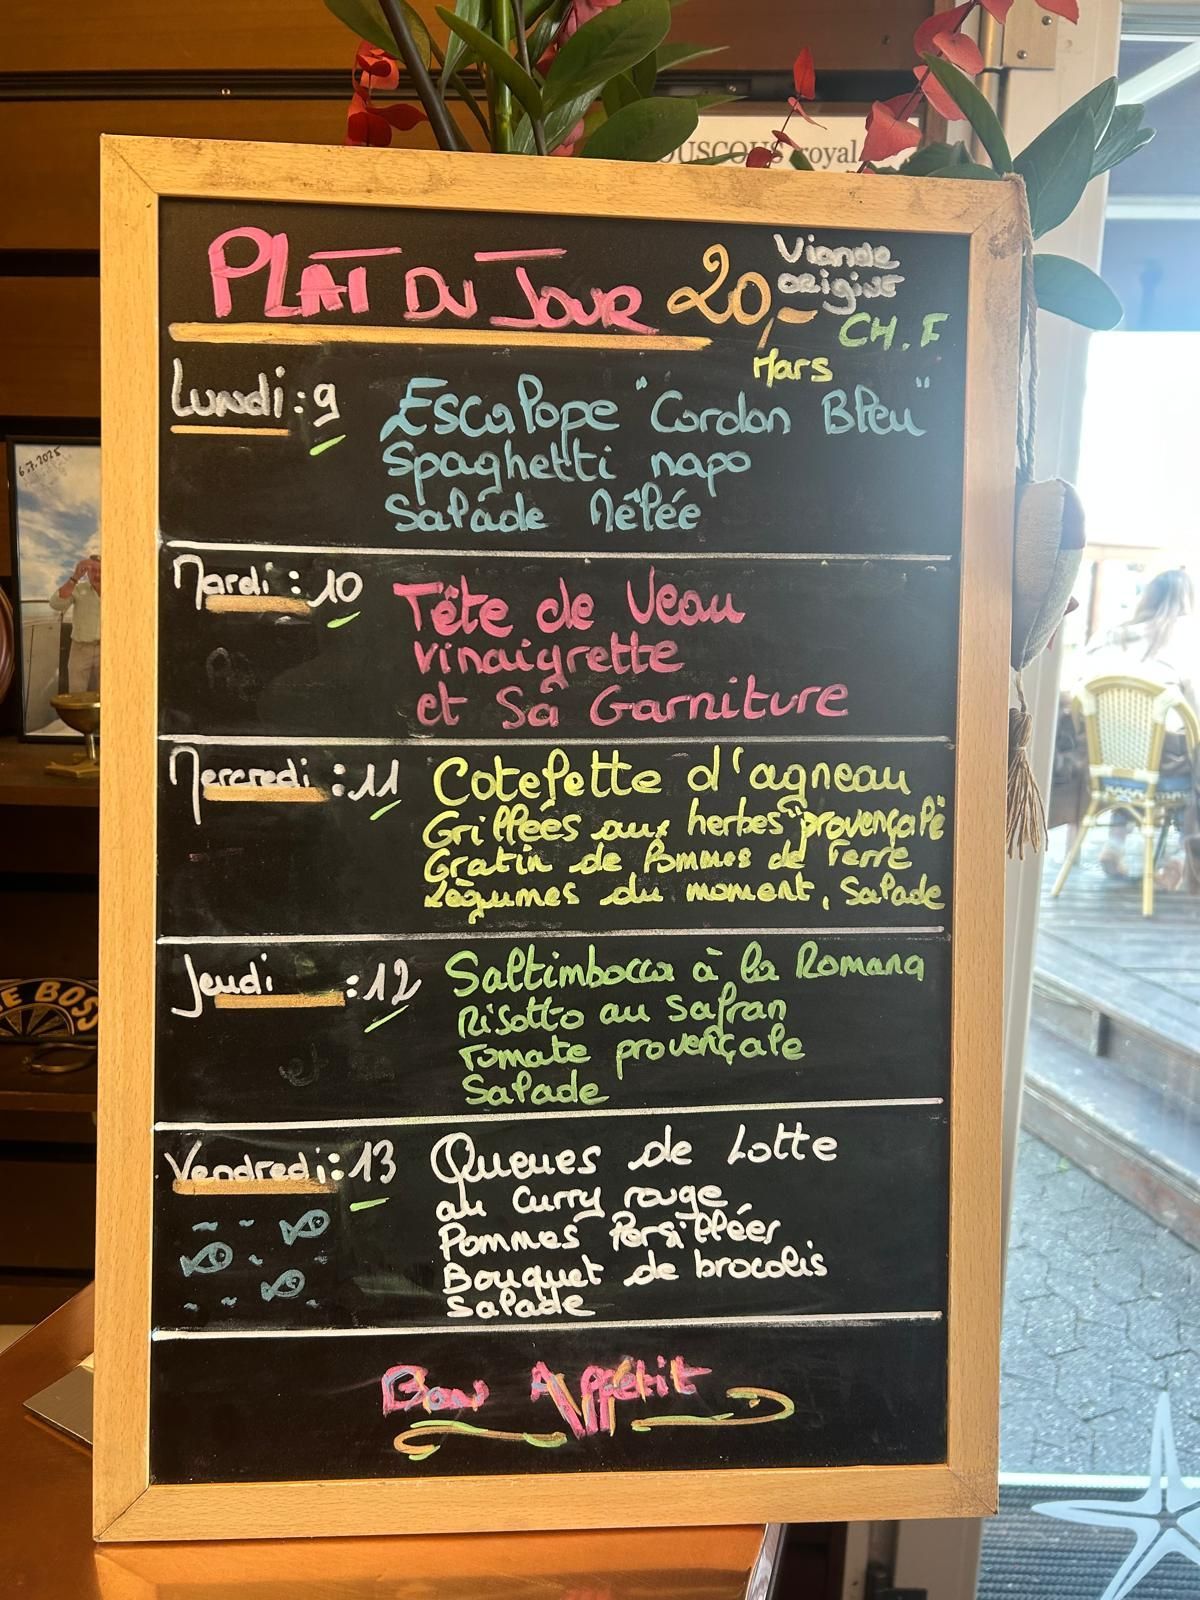 OUSCOUS royal
PLAT DU JOUR 20,-
Viande
origine
CH. F
Mars
Lundi : 9
Escalope "Cordon Bleu"
Spaghetti napo
Salade Mêlée
Mardi : 10
Tête de Veau
vinaigrette
et Sa Garniture
Mercredi : 11
Cotelette d'agneau
Grillées aux herbes "provençale
Gratin de Pommes de Terre
Légumes du moment, Salade
Jeudi : 12
Saltimbocca à la Romana
Risotto au Safran
Tomate provençale
Salade
Vendredi : 13
Queues de Lotte
au Curry rouge
Pommes Persillées
Bouquet de brocolis
Salade
Bon Appétit
6.7.2025
E BOSS